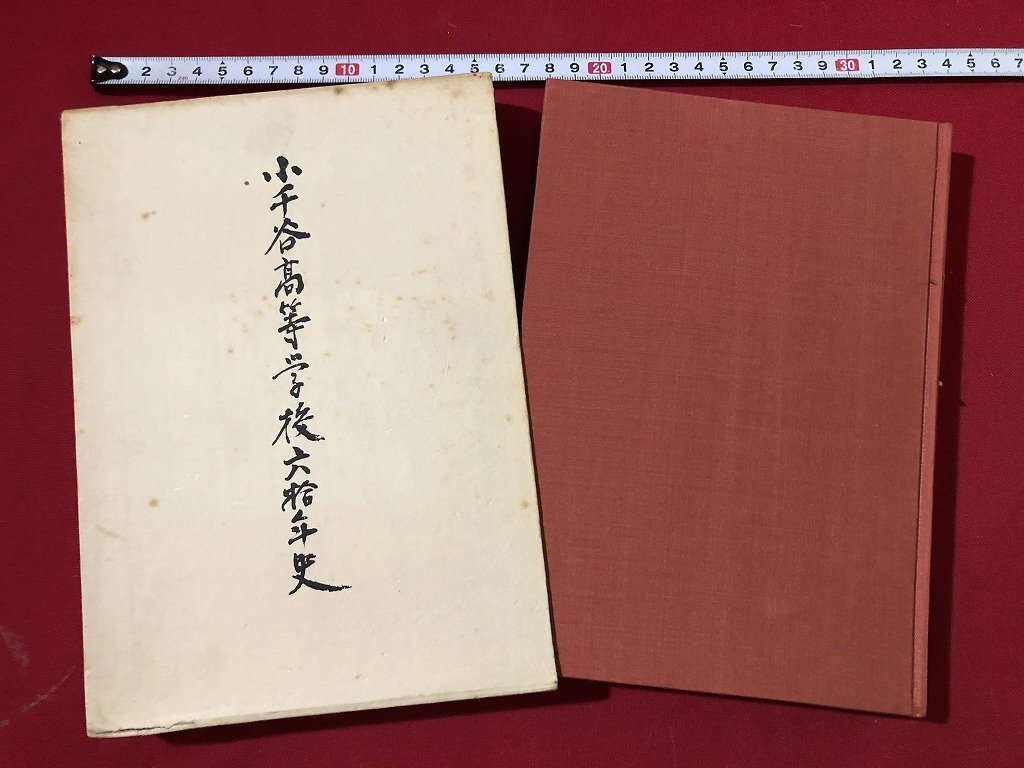 2 3 4 5 6 7 8 9 10 1 2 3 4 5 6 7 8 9 20 1 2 3 4 5 6 7 8 9 30 1 2 3 4 5 6 7
小千谷高等学校六拾年史